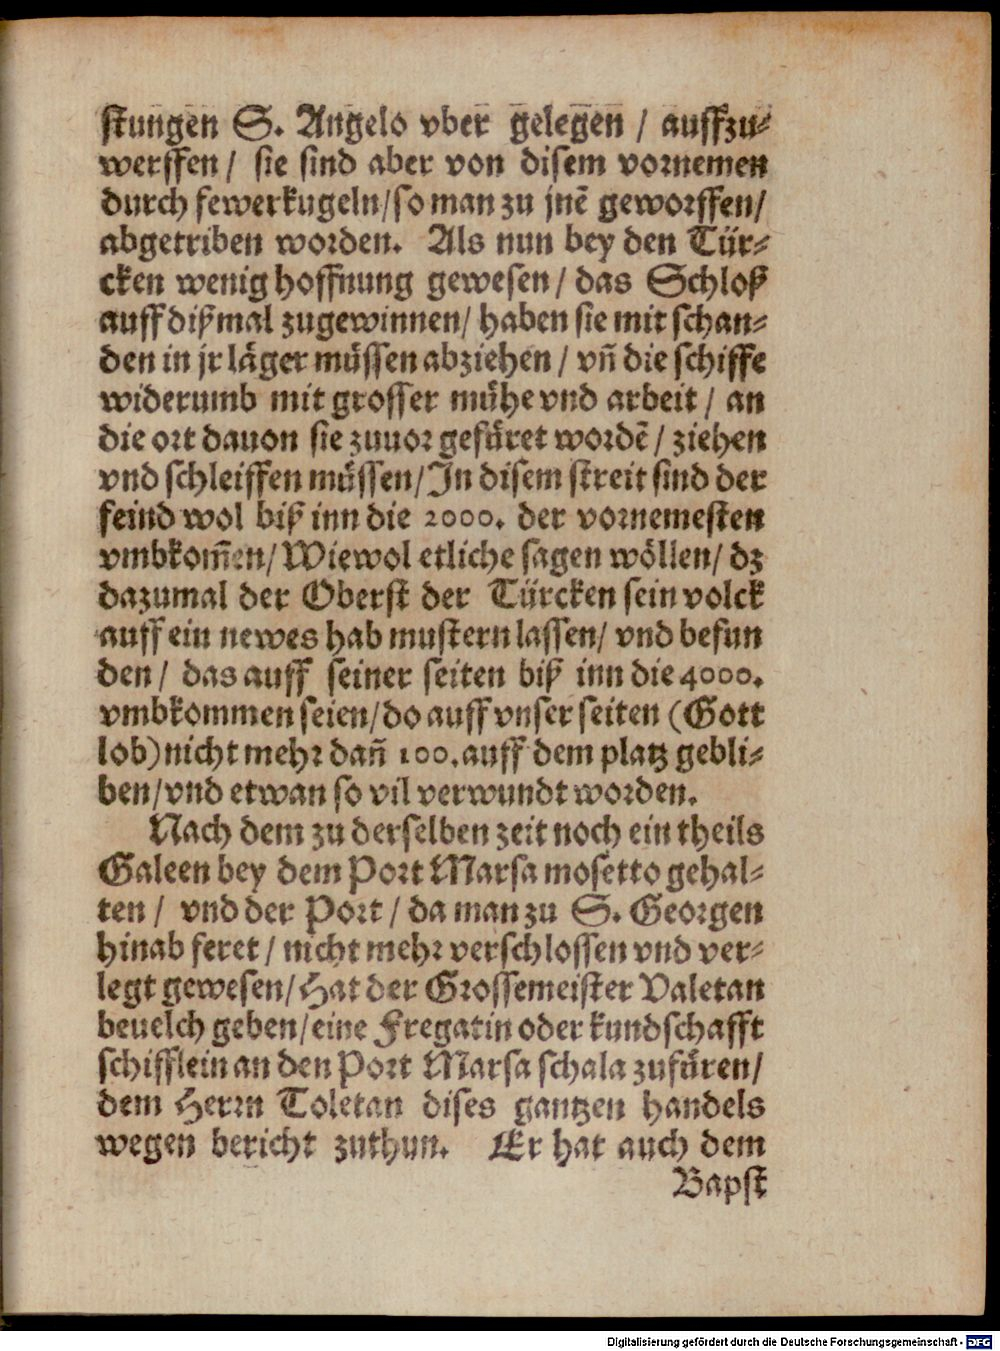 stungen S. Angelo vber gelegen / auffzu⸗
werffen / sie sind aber von disem vornemen
durch fewerkugeln/so man zu jnē geworffen/
abgetriben worden. Als nun bey den Tür⸗
cken wenig hoffnung gewesen / das Schloß
auff dißmal zugewinnen/ haben sie mit schan⸗
den in jr läger müssen abziehen / vñ die schiffe
widerumb mit grosser mühe vnd arbeit / an
die ort dauon sie zuuor gefüret wordē / ziehen
vnd schleiffen müssen/In disem streit sind der
feind wol biß inn die 2000. der vornemesten
vmbkom̄en/Wiewol etliche sagen wöllen/ dz
dazumal der Oberst der Türcken sein volck
auff ein newes hab mustern lassen/ vnd befun
den / das auff seiner seiten biß inn die 4000.
vmbkommen seien/do auff vnser seiten (Gott
lob) nicht mehr dañ 100. auff dem platz gebli⸗
ben/vnd etwan so vil verwundt worden.
Nach dem zu derselben zeit noch ein theils
Galeen bey dem Port Marsa mosetto gehal⸗
ten / vnd der Port / da man zu S. Georgen
hinab feret / nicht mehr verschlossen vnd ver⸗
legt gewesen/Hat der Grossemeister Valetan
beuelch geben/eine Fregatin oder kundschafft
schifflein an den Port Marsa schala zufüren/
dem Herrn Toletan dises gantzen handels
wegen bericht zuthun. Er hat auch dem
Bapst
Digitalisierung gefördert durch die Deutsche Forschungsgemeinschaft - DFG